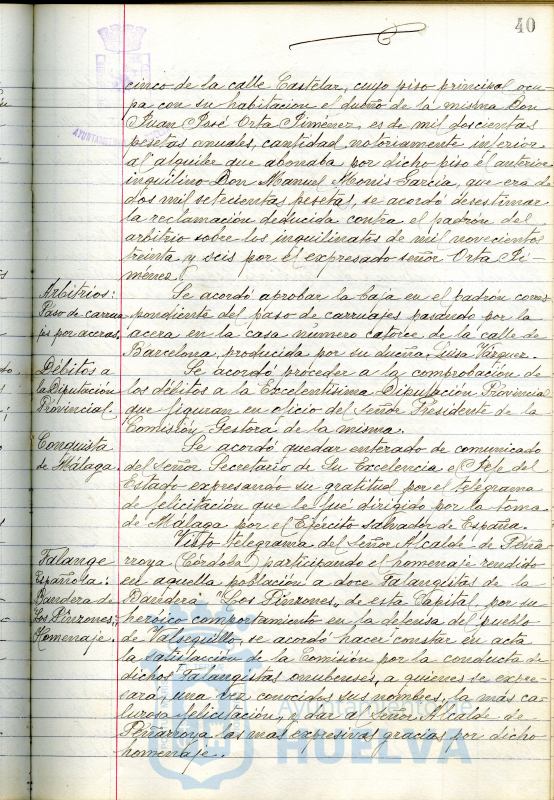 40
cinco de la calle Castelar, cuyo piso principal ocu-
pa con su habitación el dueño de la misma Don
Juan José Orta Jiménez, es de mil doscientas
pesetas anuales, cantidad notoriamente inferior
al alquiler que abonaba por dicho piso el anterior
inquilino Don Manuel Monis García, que era de
dos mil setecientas pesetas, se acordó desestimar
la reclamación deducida contra el padrón del
arbitrio sobre los inquilinatos de mil novecientos
treinta y seis por el expresado señor Orta Ji-
ménez.
Arbitrios:
Paso de carrua
jes por aceras.
Se acordó aprobar la baja en el padrón corres
pondiente del paso de carruajes parando por la
acera en la casa número catorce de la calle de
Barcelona, producida por su dueña Luisa Vázquez.
Débitos a
la Diputación
Provincial.
Se acordó proceder a la comprobación de
los débitos a la Excelentísima Diputación Provincial
que figuran en oficio del Señor Presidente de la
Comisión Gestora de la misma.
Conquista
de Málaga.
Se acordó quedar enterado de comunicado
del Señor Secretario de Su Excelencia el Jefe del
Estado expresando su gratitud por el telegrama
de felicitación que le fué dirigido por la toma
de Málaga por el Ejército salvador de España.
Falange
Española:
Bandera de
Los Pinzones:
Homenaje.
Visto telegrama del Señor Alcalde de Peña
rroya (Córdoba) participando el homenaje rendido
en aquella población a doce Falangistas de la
Bandera "Los Pinzones, de esta Capital por su
heroico comportamiento en la defensa del pueblo
de Valsequillo, se acordó hacer constar en acta
la satisfacción de la Comisión por la conducta de
dichos Falangistas onubenses, a quienes se expre-
sará, una vez conocidos sus nombres, la más ca-
lurosa felicitación, y dar al Señor Alcalde de
Peñarroya las mas expresivas gracias por dicho
homenaje.
Ayuntamiento de
HUELVA